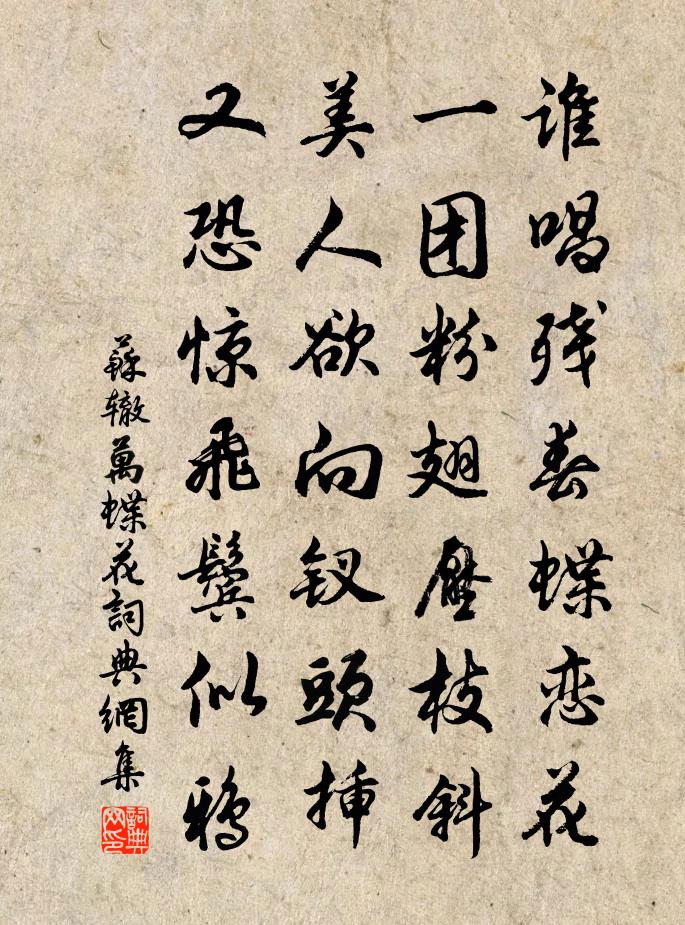 谁唱残春蝶恋花
一团粉翅压枝斜
美人欲向钗頭插
又恐惊飛鬓似鴉
蘇辙萬蝶花詞典網集
詞典网印